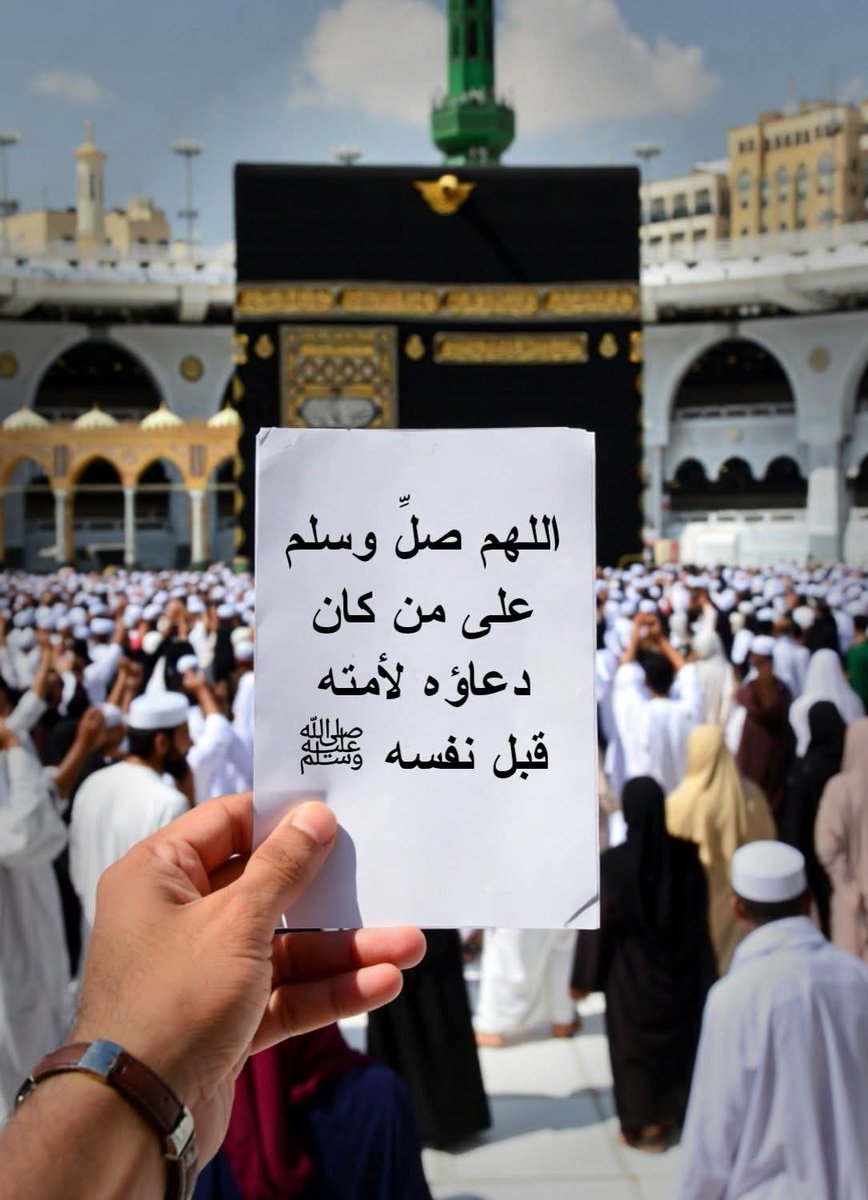 اللهم صلِّ وسلم
على من كان
دعاؤه لأمته
قبل نفسه ﷺ